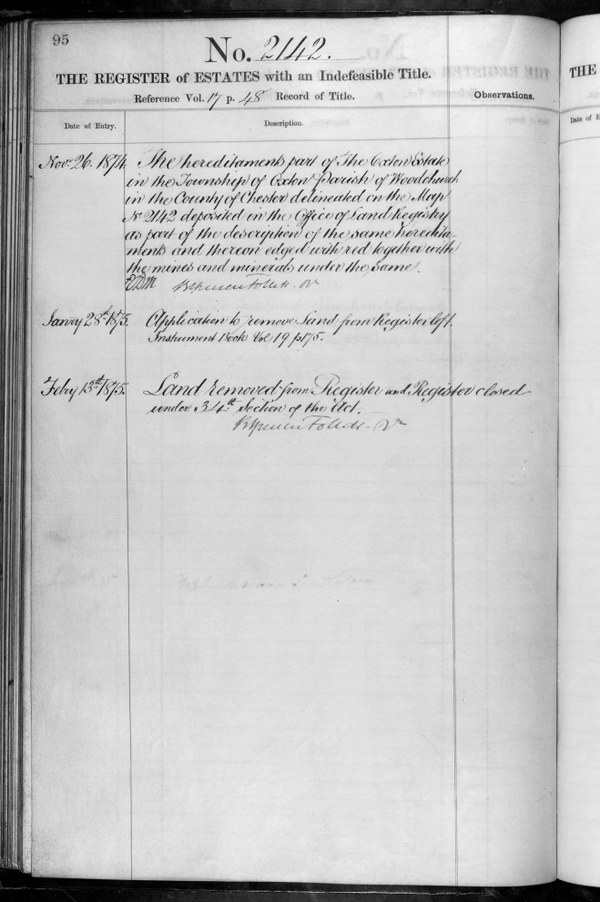 95
No. 2142.
THE REGISTER of ESTATES with an Indefeasible Title.
Reference Vol. 17 p. 48 Record of Title.
Observations.
Date of Entry.
Description.
Novr. 26. 1874. The hereditaments part of The Oxton Estate
in the Township of Oxton Parish of Woodchurch
in the County of Chester delineated on the Map
No 2142 deposited in the Office of Land Registry
as part of the description of the same heredita-
ments and thereon edged with red together with
the mines and minerals under the same.
Brent Spencer Follett
Janvey 28th 1875. Application to remove Land from Register left.
Instrument Book Vol 19 p 175.
Febry 13th 1875. Land removed from Register and Register closed
under 34th Section of the Act.
THE
Date of E